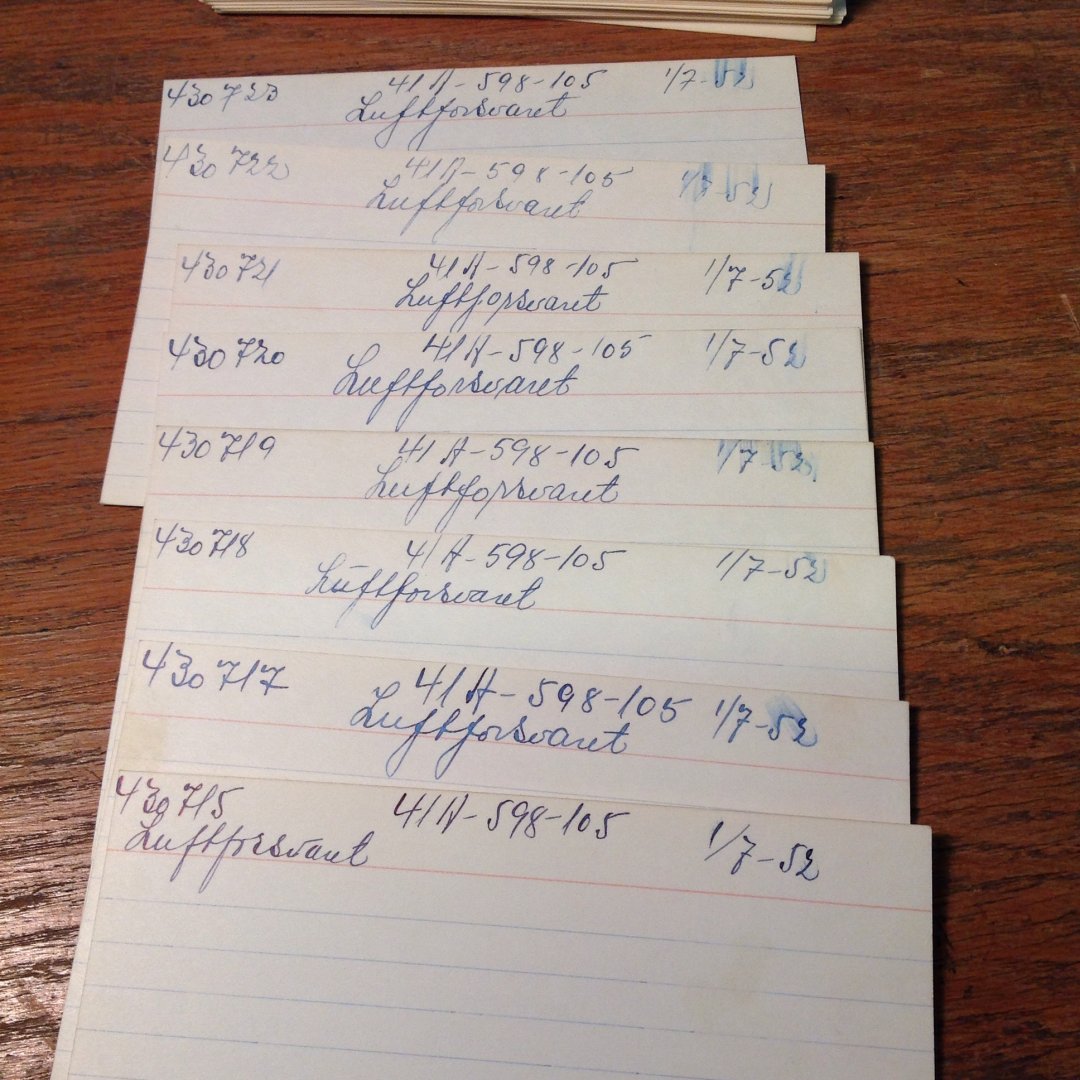 430723 41A-598-105 1/7-52
Luftforsvaret
430722 41A-598-105 1/7-52
Luftforsvaret
430721 41A-598-105 1/7-52
Luftforsvaret
430720 41A-598-105 1/7-52
Luftforsvaret
430719 41A-598-105 1/7-52
Luftforsvaret
430718 41A-598-105 1/7-52
Luftforsvaret
430717 41A-598-105 1/7-52
Luftforsvaret
430715 41A-598-105 1/7-52
Luftforsvaret